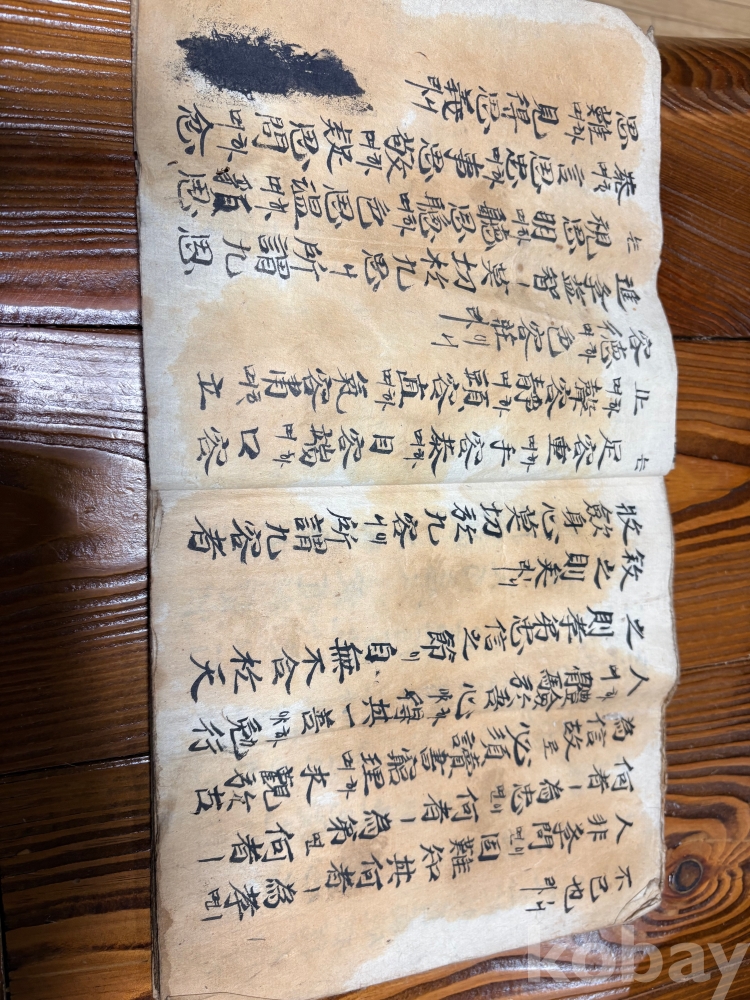 不已也니라
人非學問이면固難知其何者ㅣ為孝며
何者ㅣ為忠며何者ㅣ為弟며何者ㅣ
為信故로必須讀書窮理하며求觀於古
人하며體驗於吾心하야得其一善하야勉行
之則孝弟忠信之節이自無不合於天
敍之則矣니라
收斂身心莫切於九容이니所謂九容者
는足容重하며手容恭하며目容端하며口容
止하며聲容靜하며頭容直하며氣容肅하며立
容德하며色容莊이니라
進學益智ㅣ莫切於九思이니所謂九思
는視思明하며聽思聰하며色思溫하며貌思
恭하며言思忠하며事思敬하며疑思問하며忿
思難하며見得思義니라
kobay